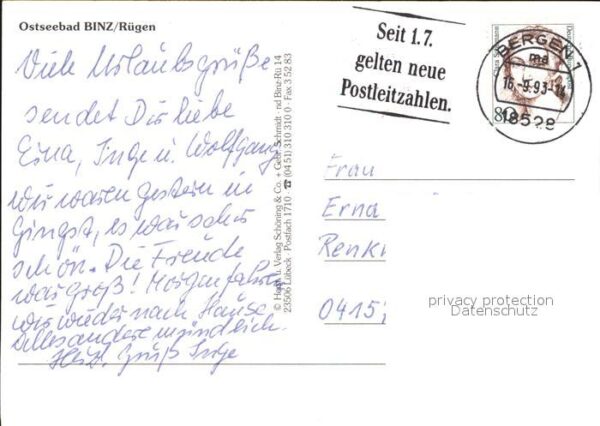 Ostseebad BINZ/Rügen
Viele Urlaubsgrüße
sendet Dir liebe
Erna, Inge u. Wolfgang
wir waren gestern in
Gingst, es war sehr
schön. Die Freude
war groß! Morgen fahren
wir wieder nach Hause
Alles andere mündlich.
Herzl. Gruß Inge
© Verlag Schöning & Co. + Gebr. Schmidt
23506 Lübeck · Postfach 1710 · ☎ (04 51) 310 310 · Fax 3 52 83
Seit 1.7.
gelten neue
Postleitzahlen.
BERGEN 1
16.-9.93-14
18528
80
Frau
Erna
Renk
0415
privacy protection
Datenschutz